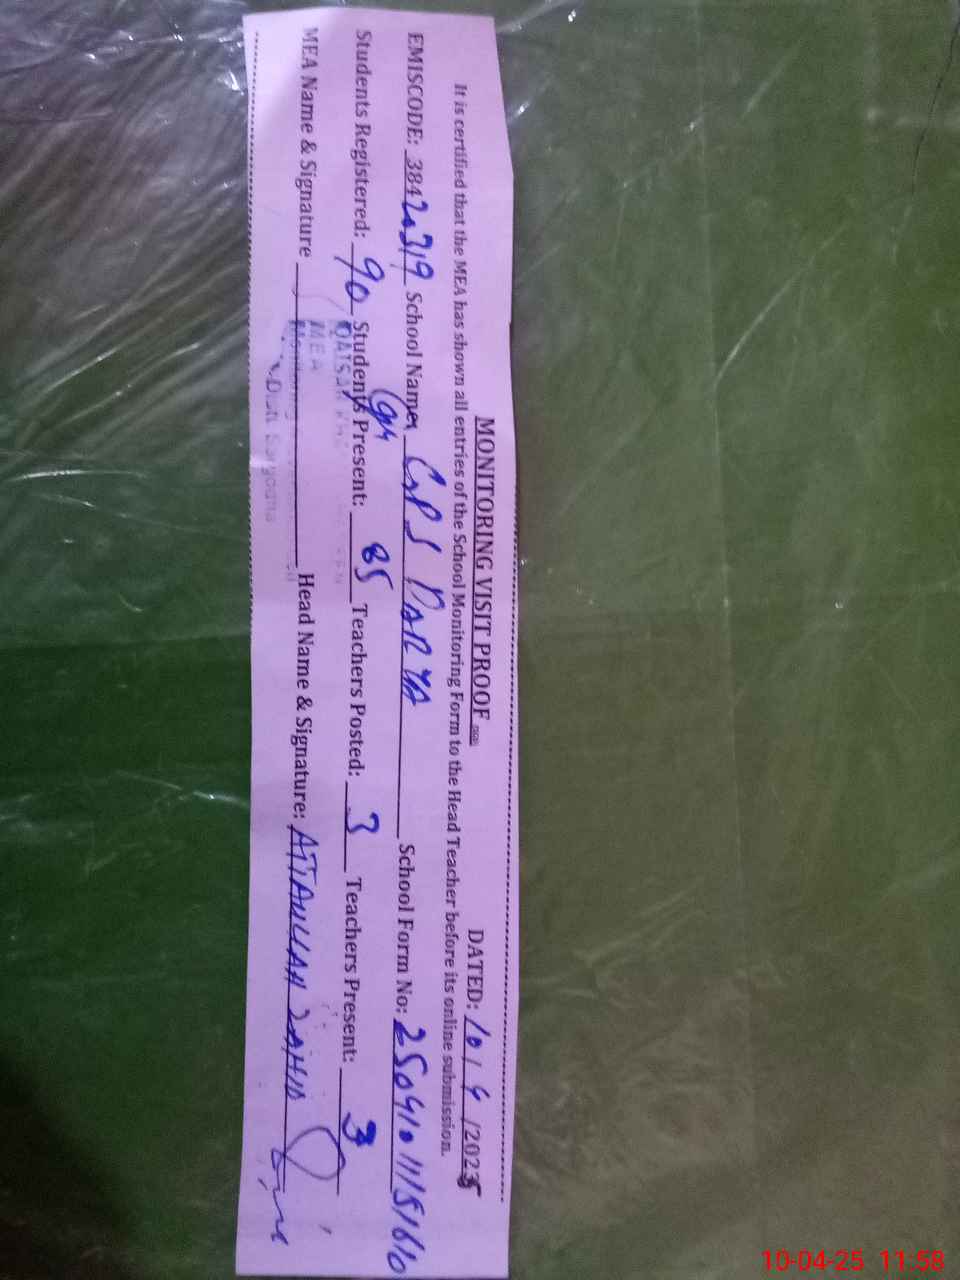 MONITORING VISIT PROOF
DATED: 10/4/2025
It is certified that the MEA has shown all entries of the School Monitoring Form to the Head Teacher before its online submission.
EMISCODE: 38420319 School Name GPS DARYA School Form No: 25041011151610
Students Registered: 90 Students Present: 85 Teachers Posted: 3 Teachers Present: 3
MEA Name & Signature Head Name & Signature: ATTAULLAH ZAHID
MEA
Monitoring
10-04-25 11:58